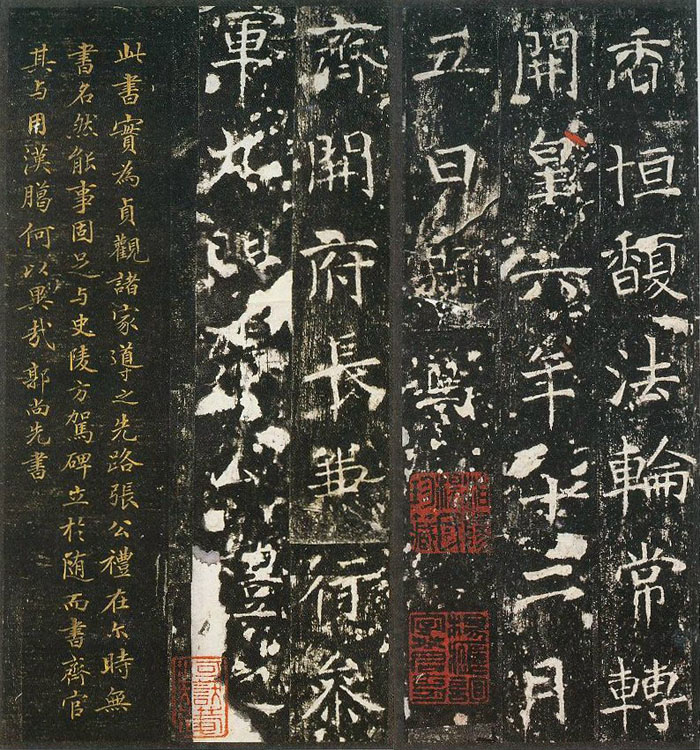 香恒馥法輪常轉
開皇六年十二月
五日題寫
齊開府長兼行參
軍九門張公禮之
此書實為貞觀諸家導之先路張公禮在尒時無
書名然能事固足与史陵方駕碑立於随而書齊官
其与用漢臘何以異哉郭尚先書